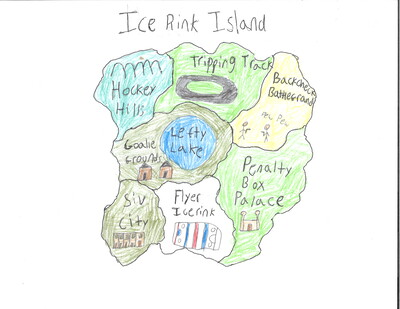 Ice Rink Island
Tripping Track
Hockey
Hills
Backcheck
Battleground
Lefty
Lake
Goalie
Grounds
Penalty
Box
Palace
Siv
City
Flyer
Icerink